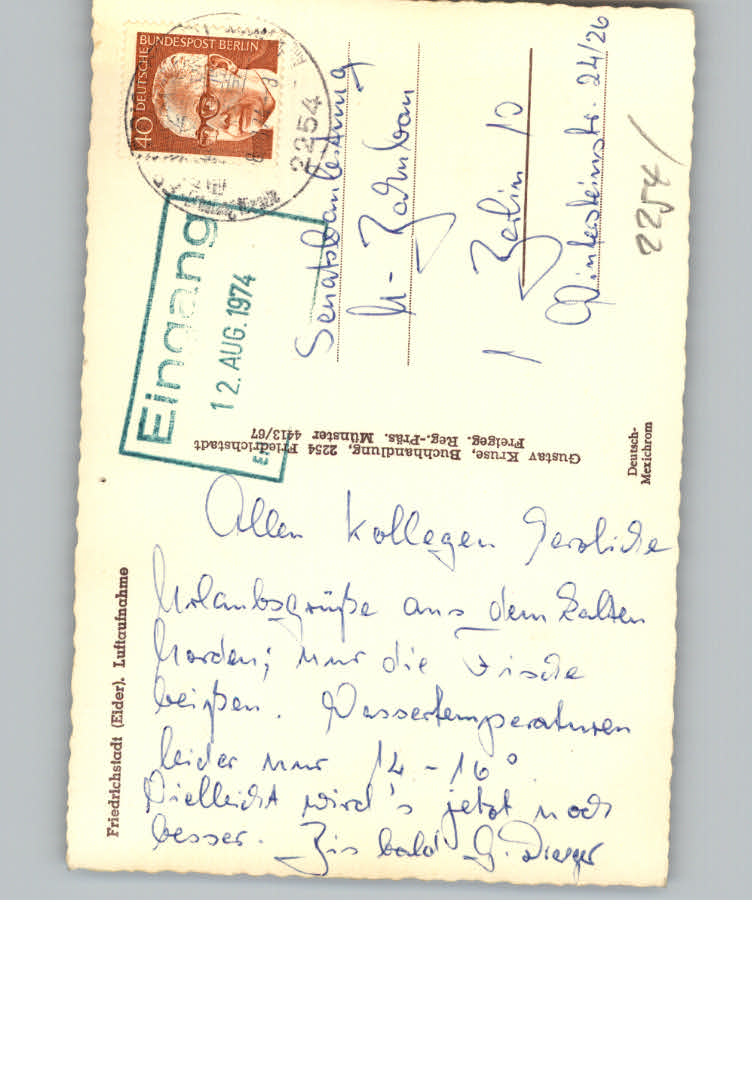 Friedrichstadt (Eider). Luftaufnahme
Allen Kollegen herzliche
Urlaubsgrüße aus dem kalten
Norden; nur die Fische
beißen. Wassertemperaturen
leider nur 14-16°.
Vielleicht wird's jetzt noch
besser. Bis bald G.
Gustav Kruse, Buchhandlung, 2254 Friedrichstadt
Freigeg. Reg.-Präs. Münster 4413/67
Deutsch-
Mexichrom
40 DEUTSCHE BUNDESPOST BERLIN
2254
Eingang
12. AUG. 1974
Senatsbauleitung
U-Bahnbau
1 Berlin 10
Wintersteinstr. 24/26
2254/